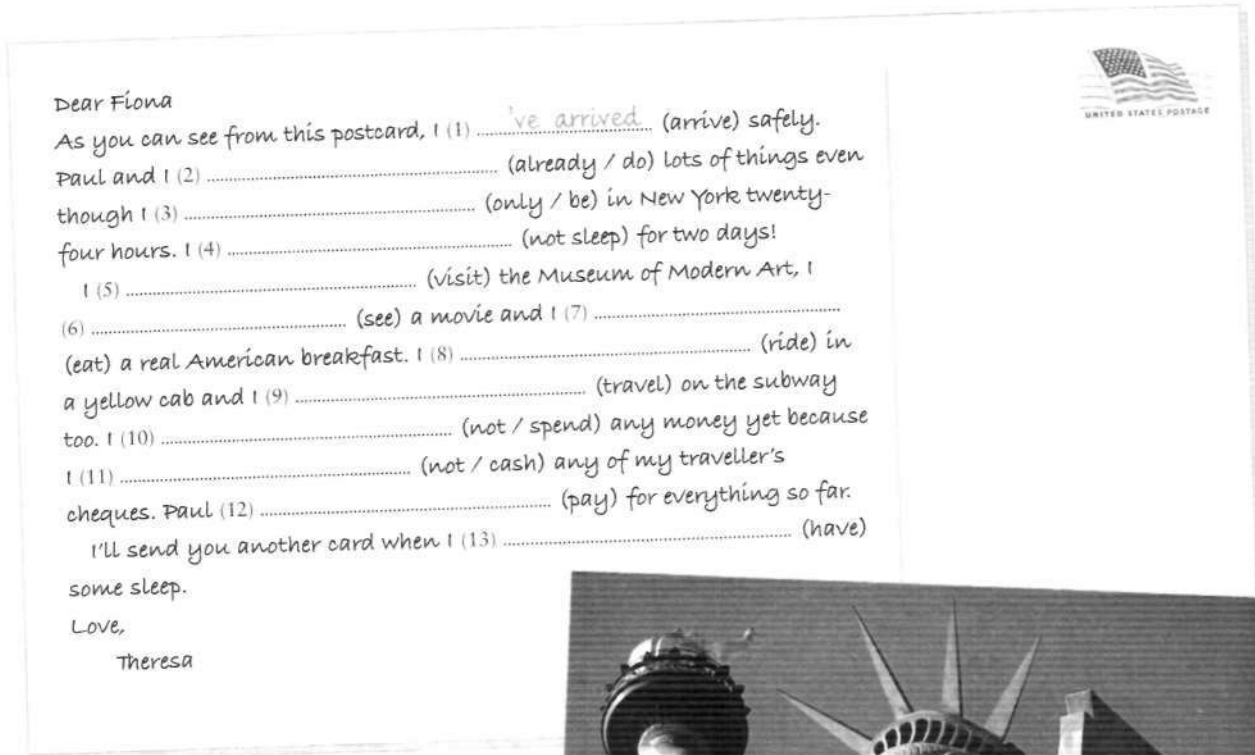 Dear Fiona
As you can see from this postcard, I (1) 've arrived (arrive) safely.
Paul and I (2) ........................ (already / do) lots of things even
though I (3) ........................ (only / be) in New York twenty-
four hours. I (4) ........................ (not sleep) for two days!
I (5) ........................ (visit) the Museum of Modern Art, I
(6) ........................ (see) a movie and I (7) ........................
(eat) a real American breakfast. I (8) ........................ (ride) in
a yellow cab and I (9) ........................ (travel) on the subway
too. I (10) ........................ (not / spend) any money yet because
I (11) ........................ (not / cash) any of my traveller's
cheques. Paul (12) ........................ (pay) for everything so far.
I'll send you another card when I (13) ........................ (have)
some sleep.
Love,
Theresa
UNITED STATES POSTAGE